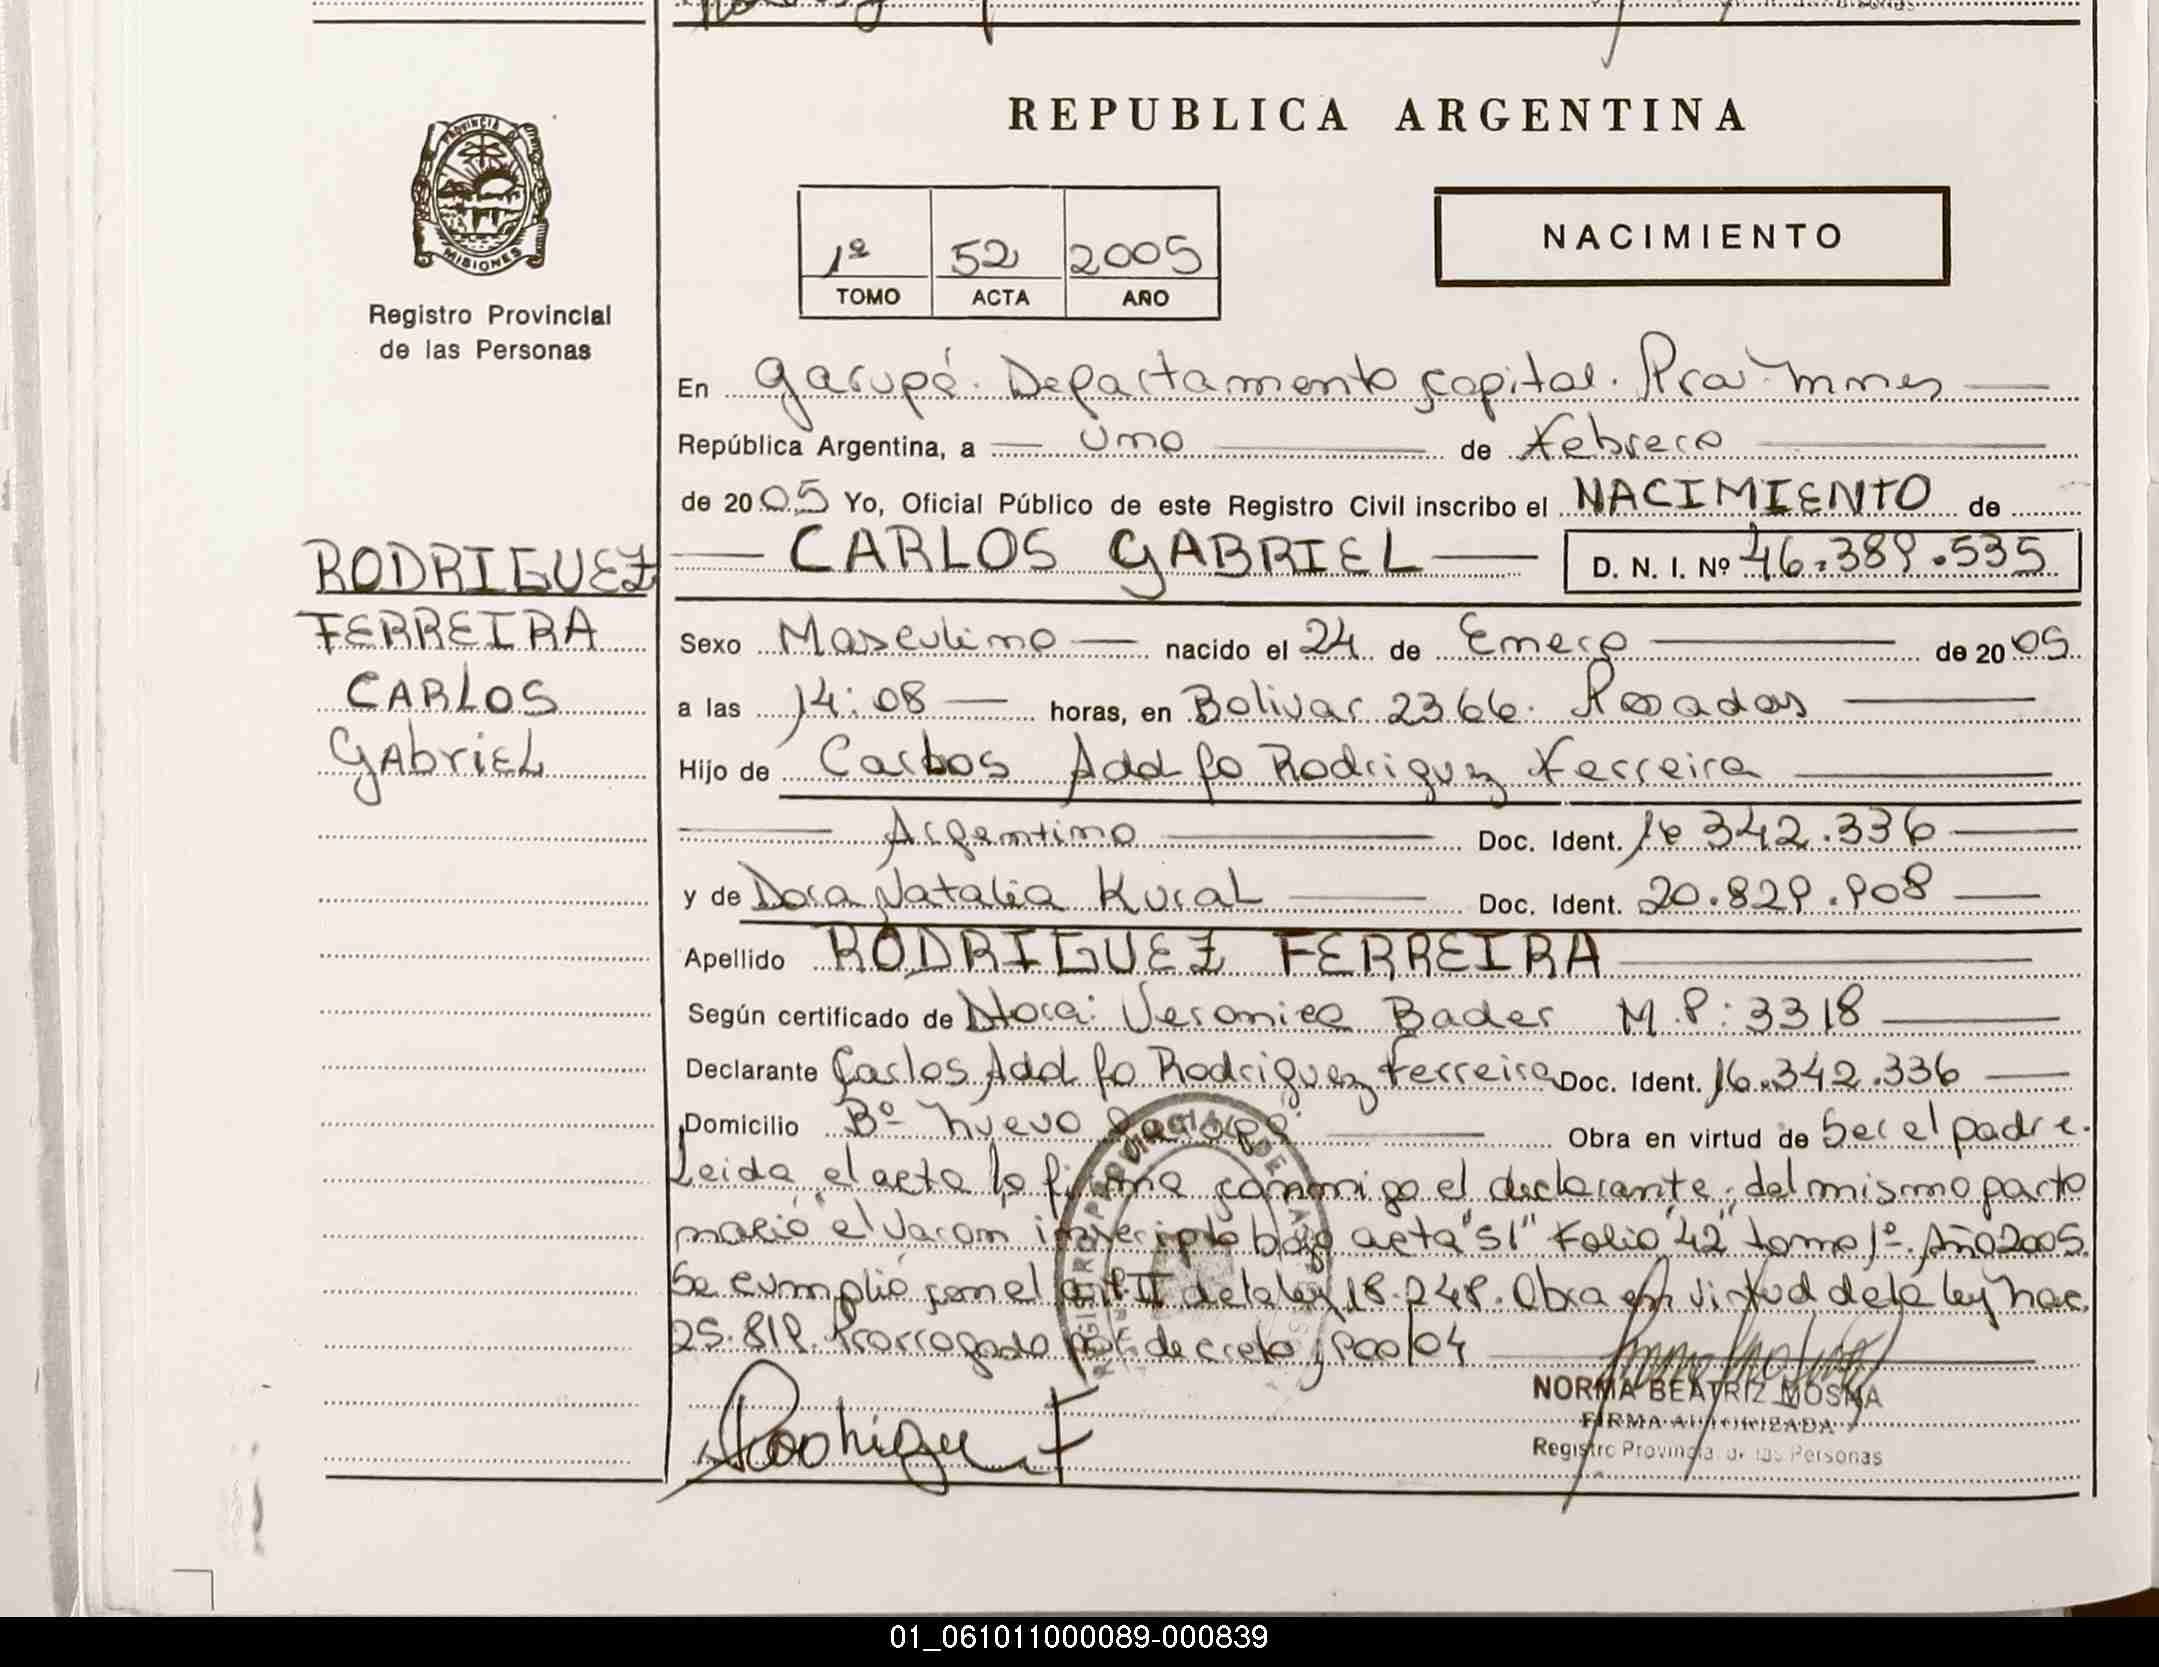 REPUBLICA ARGENTINA
PROVINCIA DE MISIONES
Registro Provincial
de las Personas
1º 52 2005
TOMO ACTA AÑO
NACIMIENTO
En Garupá. Departamento Capital. Pcia. Mnes
República Argentina, a Uno de Febrero
de 2005 Yo, Oficial Público de este Registro Civil inscribo el NACIMIENTO de
CARLOS GABRIEL D. N. I. Nº 46.389.535
RODRIGUEZ
FERREIRA
CARLOS
GAbriEL
Sexo Masculino nacido el 24 de Enero de 2005
a las 14:08 horas, en Bolivar 2366. Posadas
Hijo de Carlos Adolfo Rodriguez Ferreira
Argentino Doc. Ident. 16.342.336
y de Dora Natalia Kural Doc. Ident. 20.829.908
Apellido RODRIGUEZ FERREIRA
Según certificado de Dtora: Veronica Bader M.P: 3318
Declarante Carlos Adolfo Rodriguez Ferreira Doc. Ident. 16.342.336
Domicilio Bº Nuevo Garupá Obra en virtud de Ser el padre.
Leida el acta la firma conmigo el declarante, del mismo parto
nació el varon inscripto bajo acta "51" Folio "42" tomo 1º. Año 2005.
Se cumplió con el art. II de la ley 18.248. Obra en virtud de la ley Nac.
25.819. Prorrogado por decreto 1900/04
Rodrigue F
NORMA BEATRIZ MOSNA
FIRMA AUTORIZADA
Registro Provincial de las Personas
01_061011000089-000839